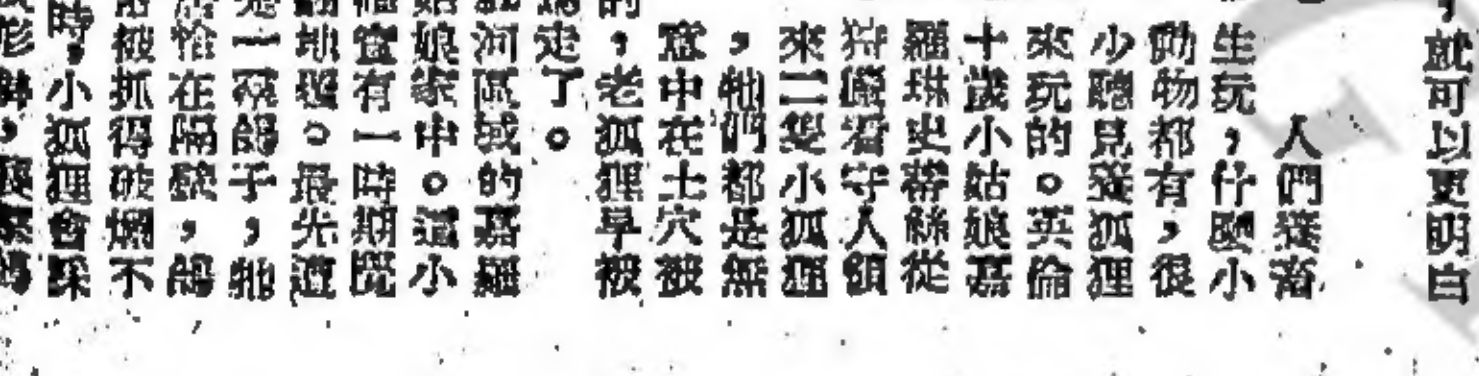 了就可以更明白
人們養畜
生玩，什麼小
動物都有，很
少聽見養狐狸
來玩的。英倫
十歲小姑娘嘉
羅琳史蒂絲從
狩獵看守人領
來二隻小狐狸
，牠們都是無
意中在土穴被
的，老狐狸早被
走了。
河區域的嘉羅
娘家中。這小
有一時期
地。最先遭
一鴿子，牠
恰在隔壁，鴿
被抓得破爛不
時，小狐狸會踩
形